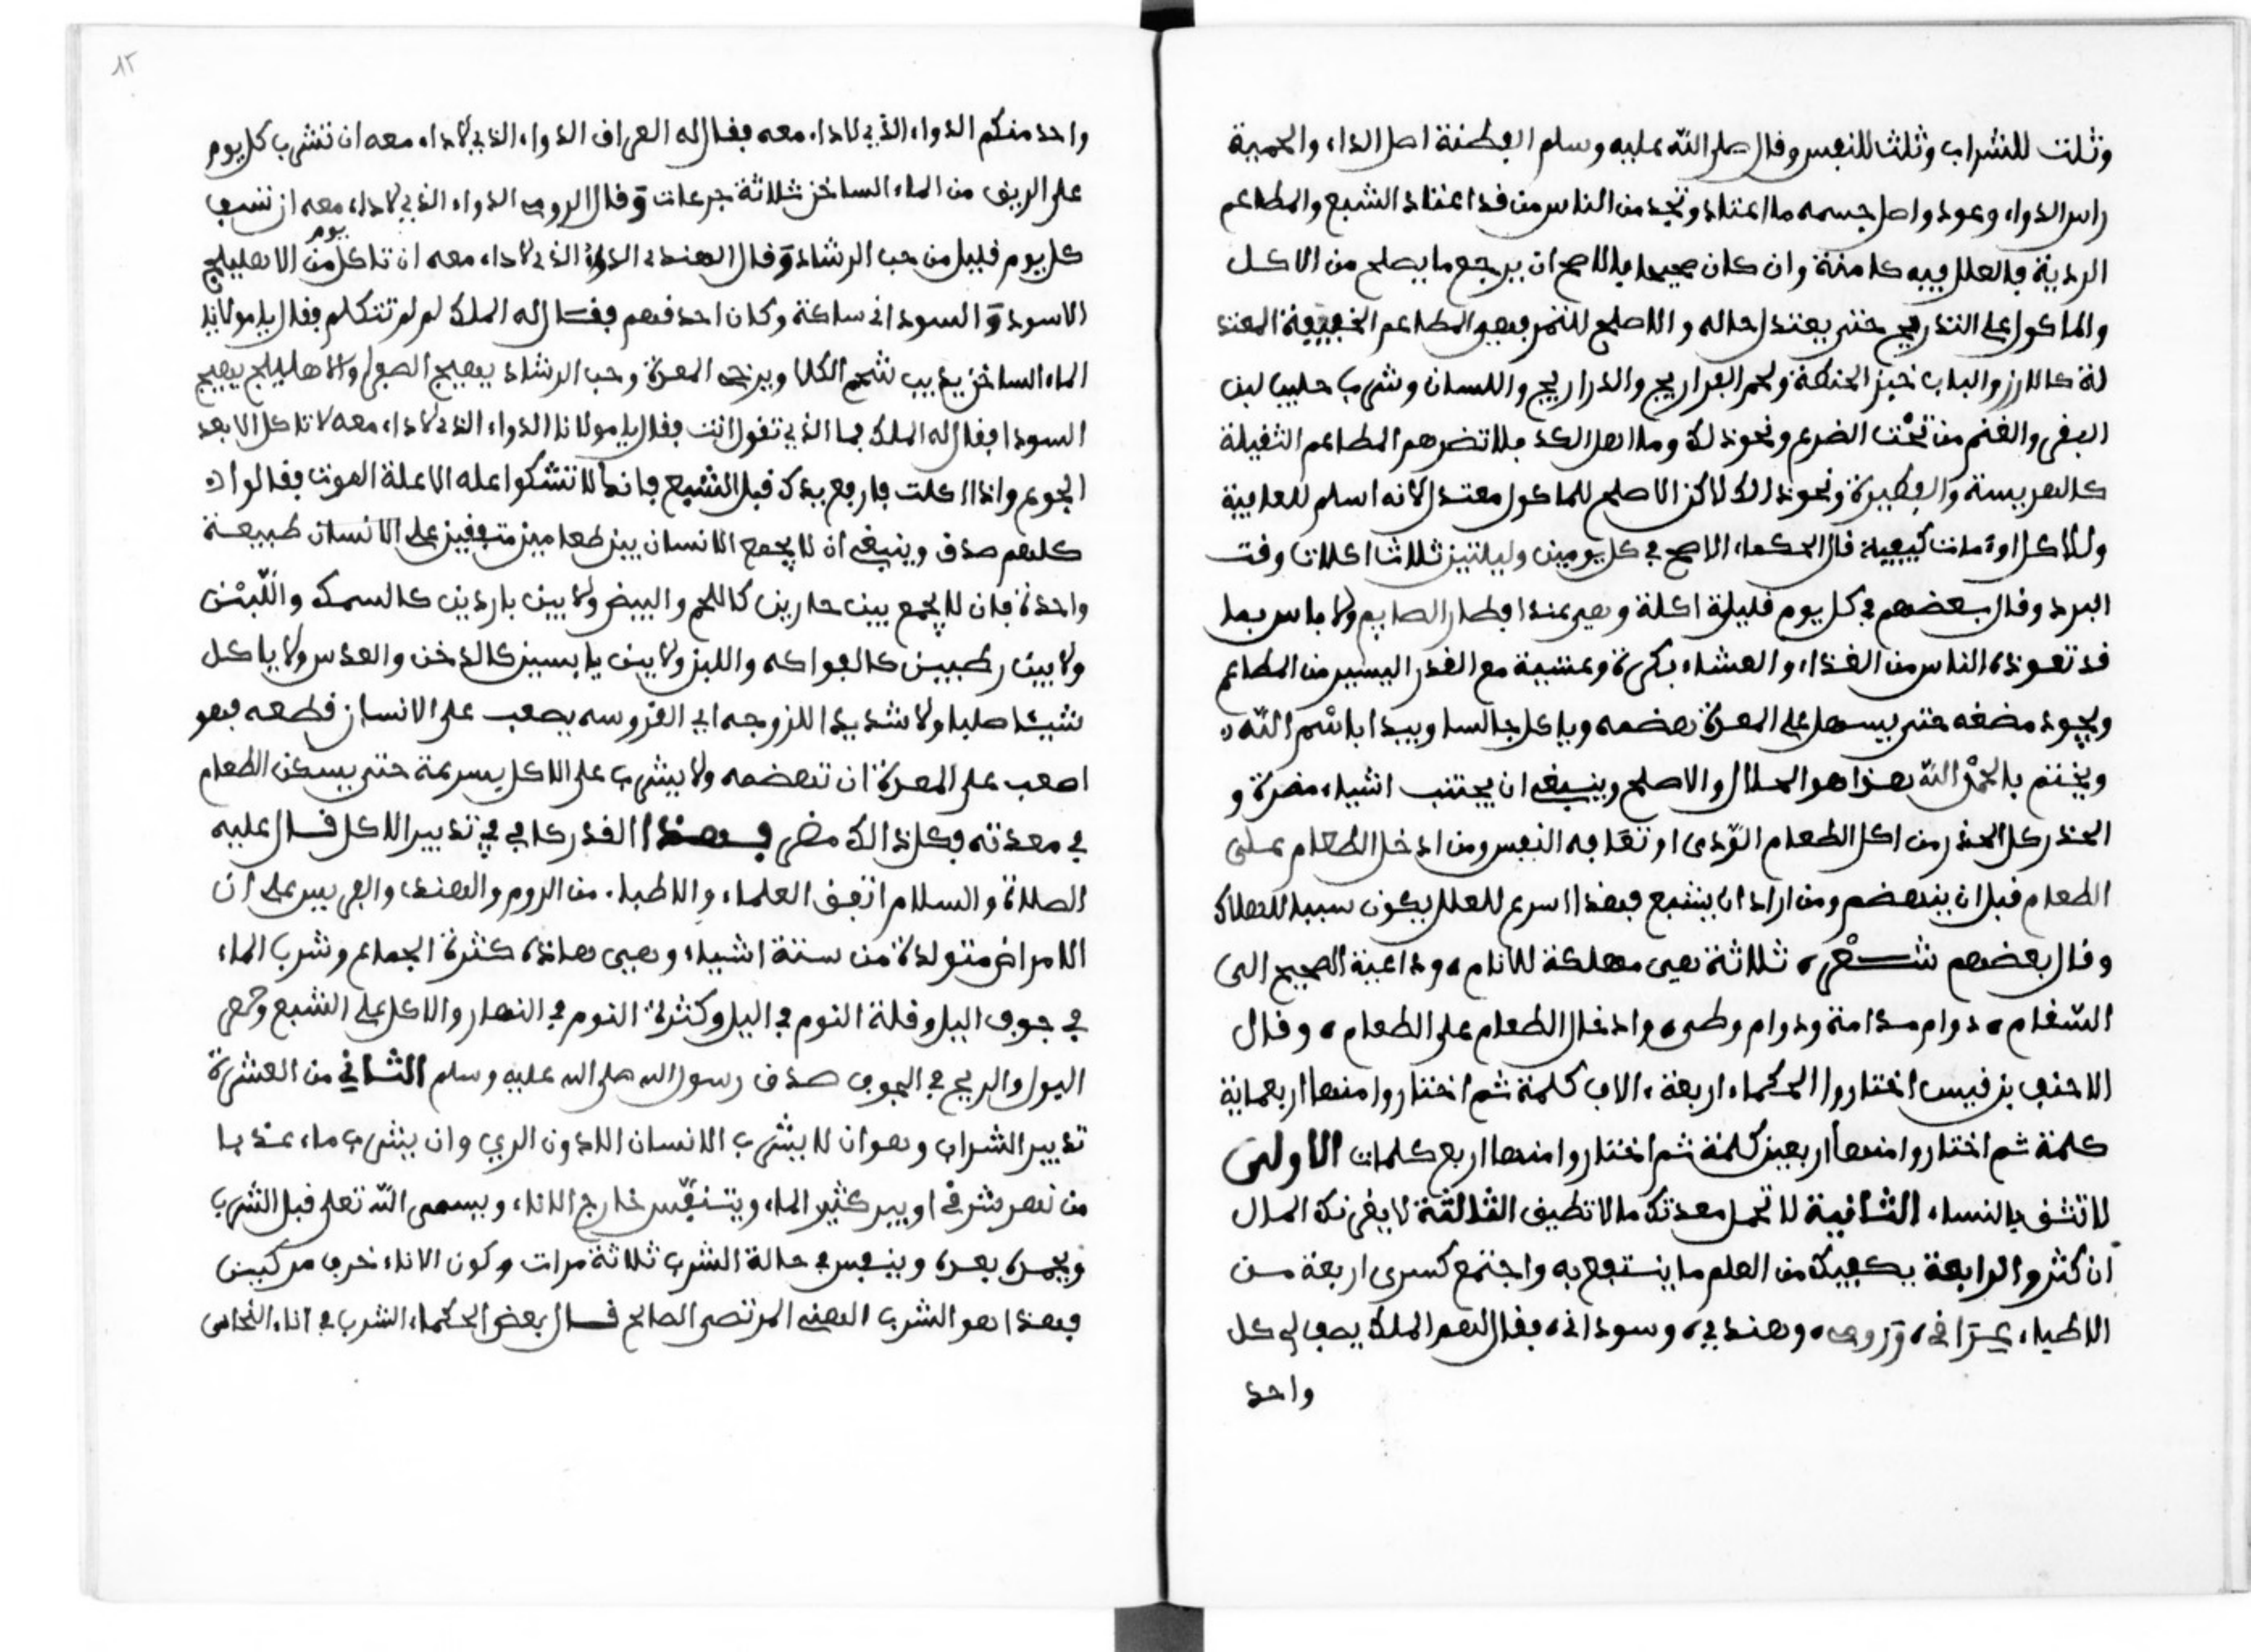 وثلث للشراب وثلثا للنفس وقال صلى الله عليه وسلم البطنة اصل الداء والحمية
راس الدواء وعودوا صل جسمه ما اعتاد وتجد من الناس من قد اعتاد الشبع والمطاعم
الردية فالعلل فيه كامنة وان كان صحيحا فالاصح ان يرجع ما يصلح من الاكل
والماكول على التدريج حتى يعتدل حاله والاصلح للنفر فيهو المطاعم الخفيفة المعتد
لة كالارز والباب خبز الحنطة ولحم الفراريج والدراريج واللسان وشرب حليب لبن
البقر والغنم من تحت الضرع ونحو ذلك وما اهل الكد فلا تضرهم المطاعم الثقيلة
كالهريسة والفطيرة ونحو ذالك لاكن الاصلح للماكول معتدل لانه اسلم للعافية
وللاكل اوقات كيفية قال الحكماء الاصح في كل يومين وليلتين ثلاثا اكلات وقت
البرد وقال بعضهم في كل يوم فليلة اكلة وهي عند افطار الصايم ولا باس بما
قد تعوذه الناس من الغذاء والعشاء بكرة وعشية مع القدر اليسير من المطاعم
ويجود مضغه حتى يسهل على المعدة هضمه وياكل جالسا ويبدا باسم الله
ويختم بالحمد الله هذا هو الحلال والاصلح وينبغي ان يجتنب اشياء مضرة و
الحذر كل الحذر من اكل الطعام الودي او تعافه النفس ومن ادخل الطعام على
الطعام قبل ان ينهضم ومن اراد ان يشبع فهذا اسرع للعلل يكون سببا للهلاك
وقال بعضهم شعر ثلاثة هي مهلكة للانام وداعية الصحيح الى
السقام دوام مدامة ودوام وطي وادخال الطعام على الطعام وقال
الاحنف بن قيس اختاروا الحكماء اربعة الاف كلمة ثم اختاروا منها اربعماية
كلمة ثم اختاروا منها اربعين كلمة ثم اختاروا منها اربع كلمات الاولى
لا تثق بالنساء الثانية لا تحمل معدتك ما لا تطيق الثالثة لا يغرنك المال
ان كثر والرابعة يكفيك من العلم ما ينتفع به واجتمع كسرى اربعة من
الاطباء عراقي ورومي وهندي وسوداني فقال لهم الملك يصف لي كل
واحد
١٢
واحد منكم الدواء الذي لا داء معه فقال له العراقي الدواء الذي لا داء معه ان تشرب كل يوم
على الريق من الماء الساخن ثلاثة جرعات وقال الرومي الدواء الذي لا داء معه ان تسف
كل يوم قليل من حب الرشاد وقال الهندي الدواء الذي لا داء معه ان تاكل يوم من الاهليلج
الاسود والسوداني ساكتة وكان احدقهم فقال له الملك لم لم تتكلم فقال يا مولانا
الماء الساخن يذيب شحم الكلا ويرخي المعدة وحب الرشاد يهيج الصفرا والاهليلج يهيج
السودا فقال له الملك فما الذي تقول انت فقال يا مولانا الدواء الذي لا داء معه لا تاكل الا بعد
الجوع واذا اكلت فارفع يدك قبل الشبع فانك لا تشكوا عله الا علة الموت فقالوا
كلهم صدق وينبغي ان لا يجمع الانسان بين طعامين متفقين على الانسان طبيعة
واحدة فان لا يجمع بين حارين كاللحم والبيض ولا بين باردين كالسمك واللبن
ولا بين رطبين كالفواكه واللبن ولا بين يابسين كالدخن والعدس ولا ياكل
شيئا صلبا ولا شديدا اللزوجه اي القروسه يصعب على الانسان قطعه فهو
اصعب على المعدة ان تهضمه ولا يشرب على الاكل بسرعة حتى يسكن الطعام
في معدته فكل ذالك مضر فهذا القدر كافي في تدبير الاكل قال عليه
الصلاة والسلام اتفق العلماء والاطباء من الروم والهند والفرس على ان
الامراض متولدة من ستة اشياء وهي هاذه كثرة الجماع وشرب الماء
في جوف اليل وقلة النوم في اليل وكثرة النوم في النهار والاكل على الشبع وحصر
البول والريح في الجوف صدق رسول الله صلى الله عليه وسلم الثاني من العشرة
تدبير الشراب وهو ان لا يشرب الانسان الا دون الري وان يشرب ماء عذبا
من نهر شرقي او بير كثير الماء ويتنفس خارج الاناء ويسمى الله تعلى قبل الشرب
ويحمده بعده وينفس في حالة الشرب ثلاثة مرات وكون الاناء خزف مركبن
فهذا هو الشرب الهني المرتضى الصالح قال بعض الحكماء الشرب في اناء النحاس